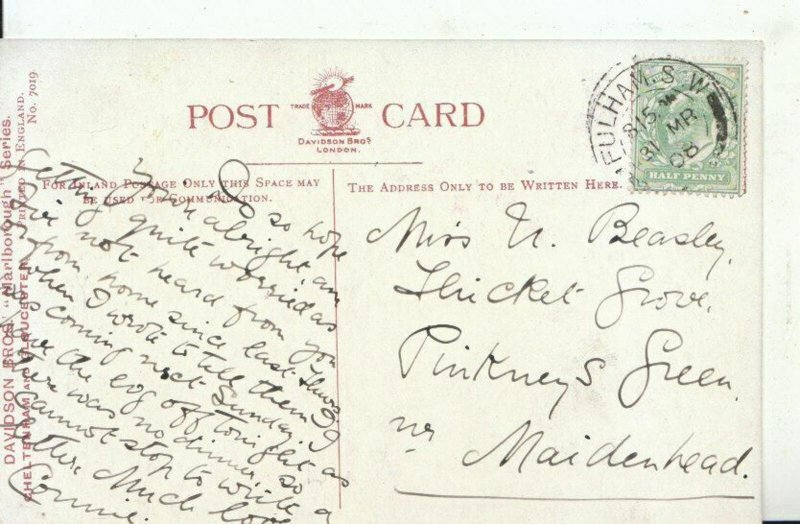 POST CARD
TRADE MARK
DAVIDSON BROS
LONDON.
FOR INLAND POSTAGE ONLY THIS SPACE MAY
BE USED FOR COMMUNICATION.
THE ADDRESS ONLY TO BE WRITTEN HERE.
DAVIDSON BROS' "Marlborough" Series.
CHELTENHAM AND GLOUCESTER. PRINTED IN ENGLAND.
No. 7019.
FULHAM. S.W
815
31 MR
08
HALF PENNY
I do so hope
you're alright, am
getting quite worried as
I've not heard from you
or from home since last Thurs.
when I wrote to tell them I
was coming next Sunday. I
have the evg off tonight as
there was no dinner, so
cannot stop to write a
letter. Much love
Connie.
Miss N. Beasley,
Thicket Grove,
Pinkneys Green,
nr Maidenhead.